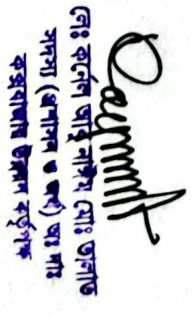 লেঃ কর্নেল আবু নাঈম মোঃ তালাত
সদস্য (প্রশাসন ও অর্থ) অঃ দাঃ
কক্সবাজার উন্নয়ন কর্তৃপক্ষ